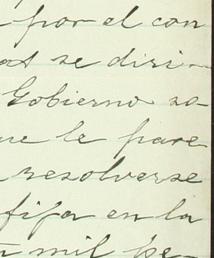 por el con
se diri-
Gobierno so-
ue le pare
resolverse
fija en la
mil pe-